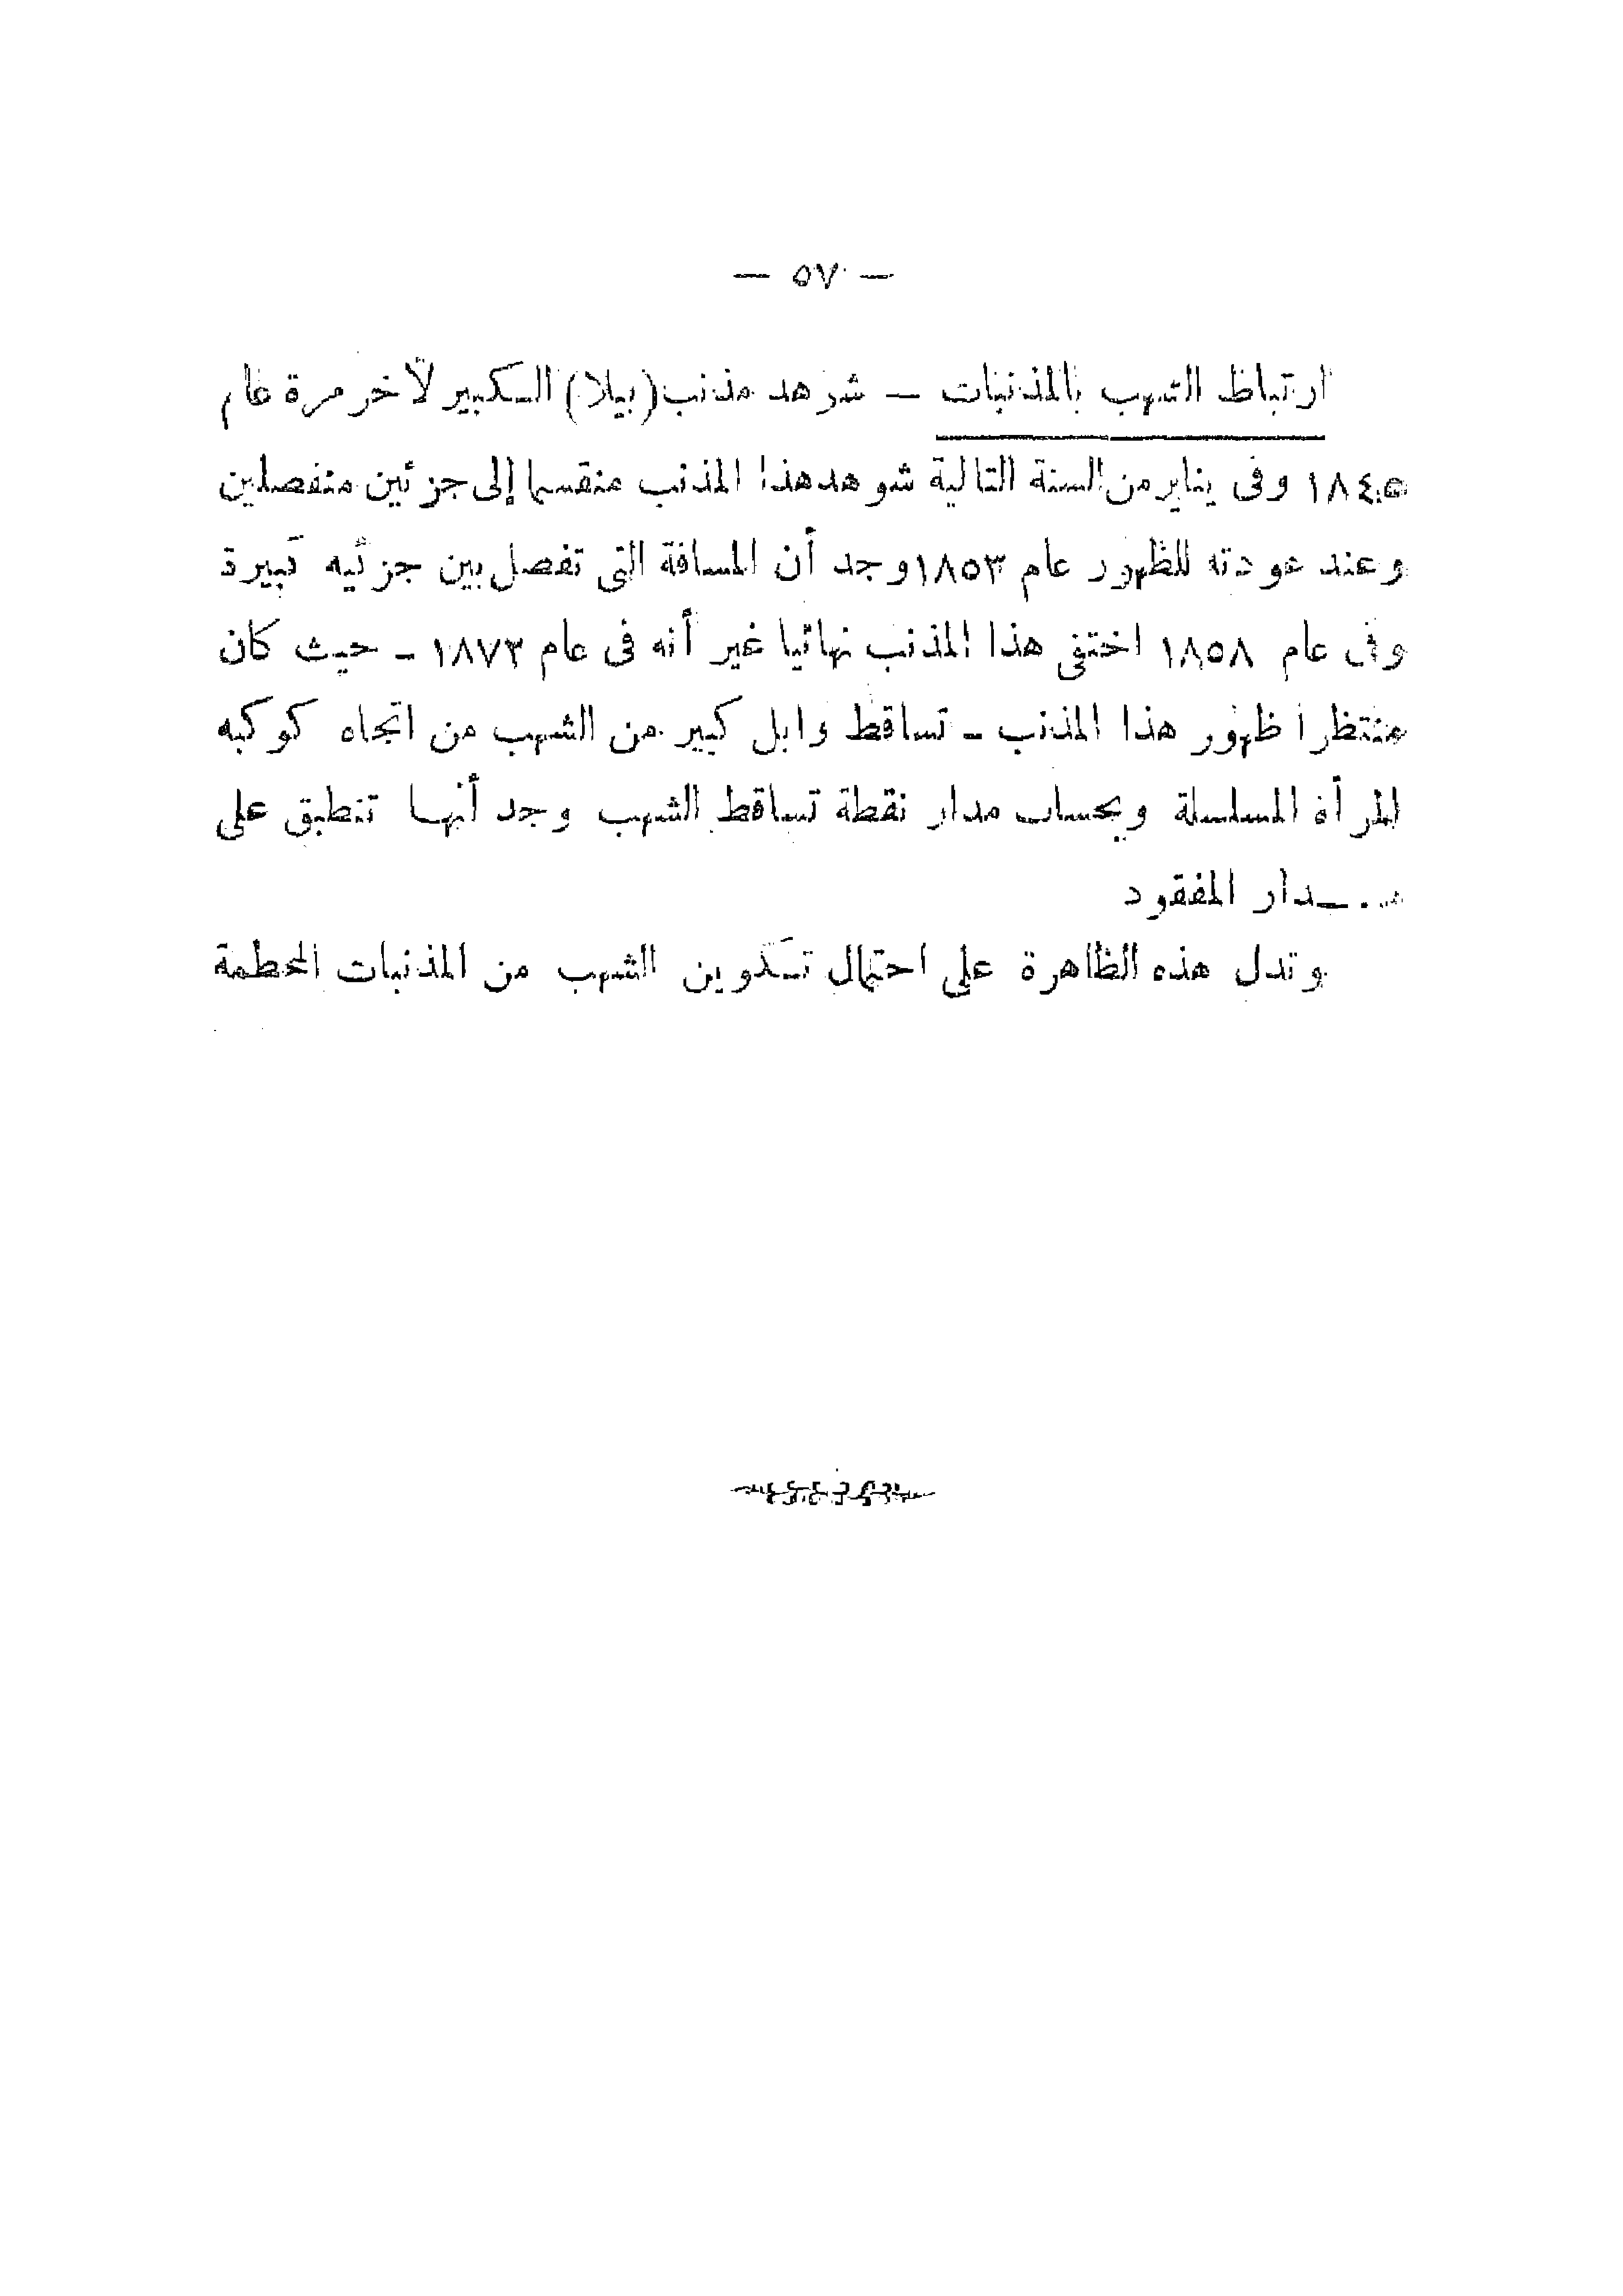 — ٥٧ —
ارتباط الشهب بالمذنبات — شوهد مذنب (بيلا) الكبير لآخر مرة عام
١٨٤٥ وفى يناير من السنة التالية شوهد هذا المذنب منقسما إلى جزئين منفصلين
وعند عودته للظهور عام ١٨٥٣ وجد أن المسافة التى تفصل بين جزئيه كبيرة
وفى عام ١٨٥٨ اختفى هذا المذنب نهائيا غير أنه فى عام ١٨٧٣ - حيث كان
منتظرا ظهور هذا المذنب - تساقط وابل كبير من الشهب من اتجاه كوكبه
المرأة المسلسلة وبحساب مدار نقطة تساقط الشهب وجد أنها تنطبق على
مدار المفقود
وتدل هذه الظاهرة على احتمال تكوين الشهب من المذنبات المحطمة